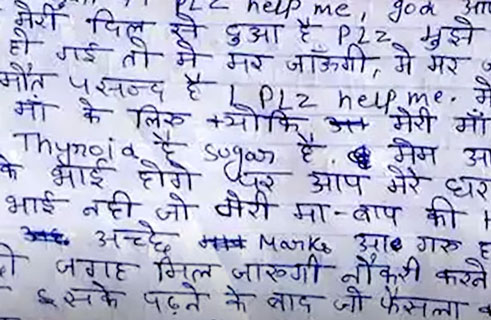 PLZ help me, god आप
मेरी दिल से दुआ है PLZ मुझे
हो गई तो मे मर जाऊँगी, मे मर ज
मौत पसन्द है । PLZ help me. मे
माँ के लिए क्योकि मेरी माँ
Thyroid है sugar है. मेम आ
के भाई होगे पर आप मेरे घर
भाई नही जो मेरी मा-बाप की
अच्छे Marks आ गए ह
जगह मिल जाएगी नौकरी करने
इसके पढ़ने के बाद जो फैसला